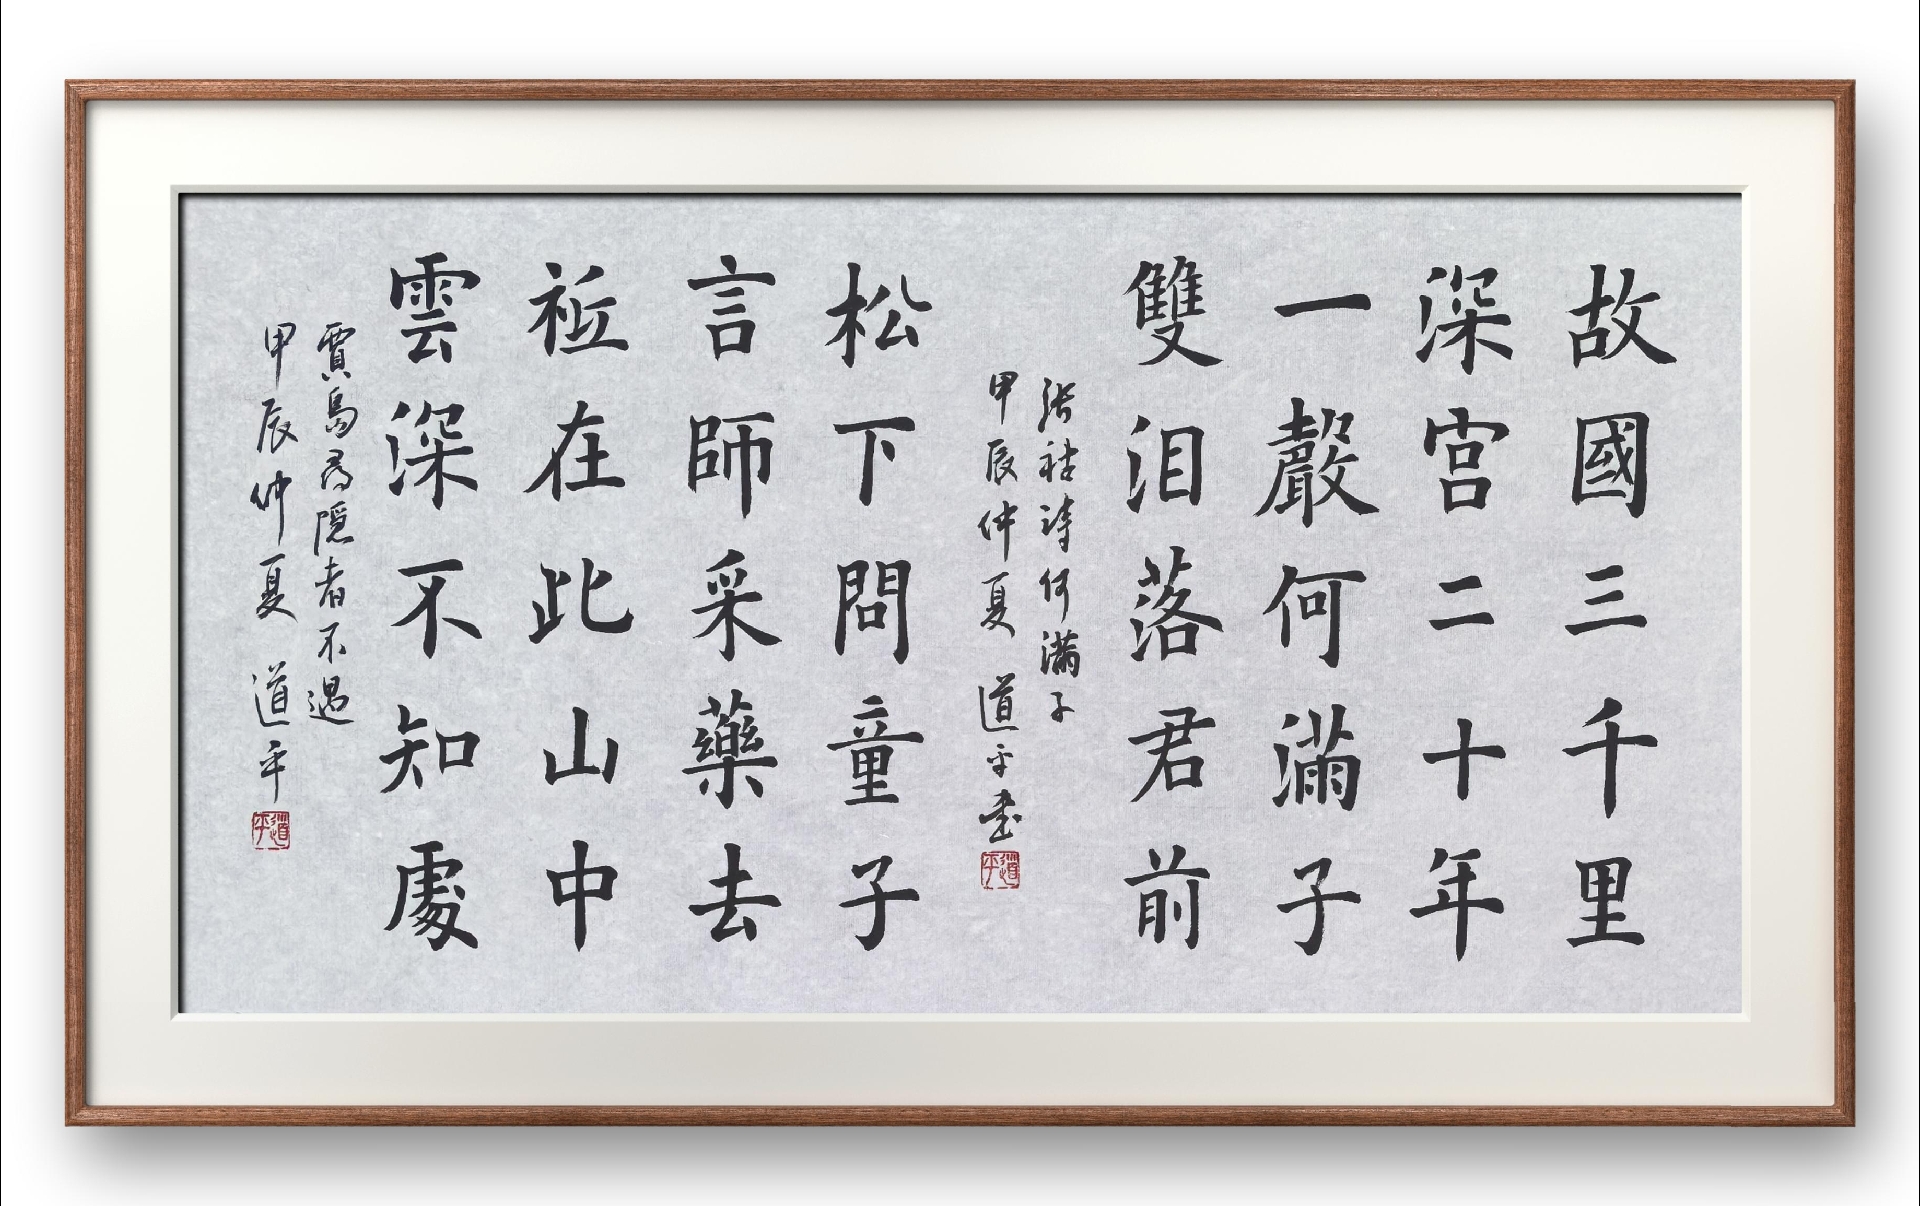 故國三千里
深宮二十年
一聲何滿子
雙泪落君前
張祜詩何滿子
甲辰仲夏 道平書
道平
松下問童子
言師采藥去
祗在此山中
雲深不知處
賈島尋隱者不遇
甲辰仲夏 道平
道平